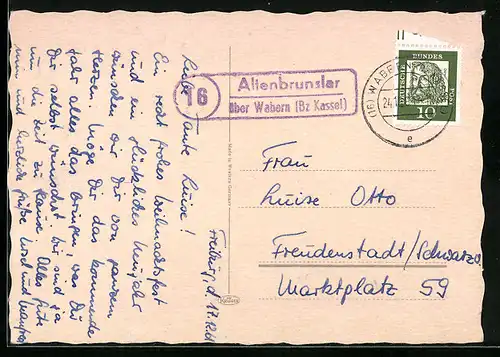 Liebe Tante Luise!
Ein recht frohes Weihnachtsfest
und ein glückliches Neujahr
wünschen wir Dir von ganzem
Herzen. Möge Dir das kommende
Jahr alles das bringen, was Du
Dir selbst wünschst. Wir sind ja
um die Zeit zu Hause. Alles Gute
und herzliche Grüße
Freiburg, d. 17.
Made in Western Germany
16
Altenbrunslar
über Wabern (Bz Kassel)
(16) WABERN
24.
e
DEUTSCHE BUNDESPOST
10
Frau
Luise Otto
Freudenstadt/Schwarzw.
Marktplatz 59